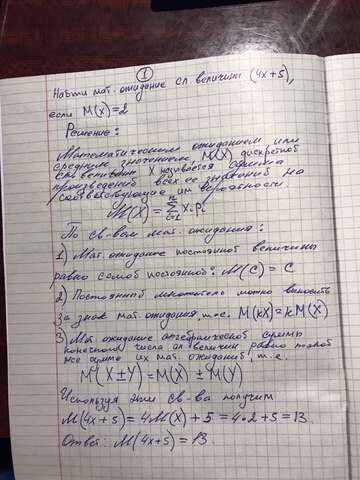 1
Найти мат. ожидание сл. величины (4x+5),
если M(X)=2
Решение:
Математическим ожиданием или
средним значением M(X) дискретной
сл. величины X называется сумма
произведений всех ее значений на
соответствующие им вероятности.
M(X) = n∑i=1 xipi
По св-вам мат. ожидания:
1) Мат. ожидание постоянной величины
равно самой постоянной: M(C) = C
2) Постоянный множитель можно выносить
за знак мат. ожидания, т.е. M(kX)=kM(X)
3) Мат. ожидание алгебраической суммы
конечного числа сл. величин равно такой
же сумме их мат. ожиданий, т.е.
M(X±Y)=M(X) ± M(Y)
Используя эти св-ва получим
M(4x+5)=4M(X)+5=4·2+5=13.
Ответ: M(4x+5)=13.